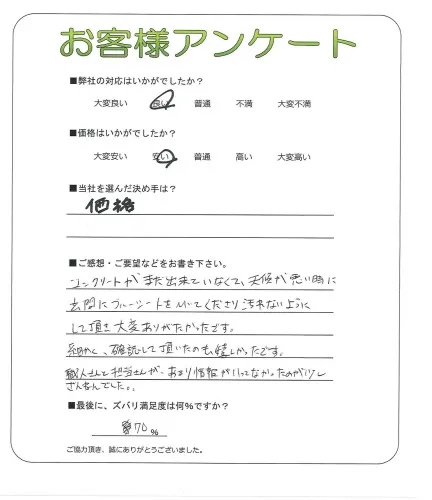 お客様アンケート
■弊社の対応はいかがでしたか?
大変良い 良い 普通 不満 大変不満
■価格はいかがでしたか?
大変安い 安い 普通 高い 大変高い
■当社を選んだ決め手は?
価格
■ご感想・ご要望などをお書き下さい。
コンクリートがまだ出来ていなくて、天候が悪い時に
玄関にブルーシートをひいてくださり汚れないように
して頂き大変ありがたかったです。
細かく、確認して頂いたのも嬉しかったです。
職人さんと担当さんが、あまり情報がいってなかったのが少し
ざんねんでした。
■最後に、ズバリ満足度は何%ですか?
70%
ご協力頂き、誠にありがとうございました。